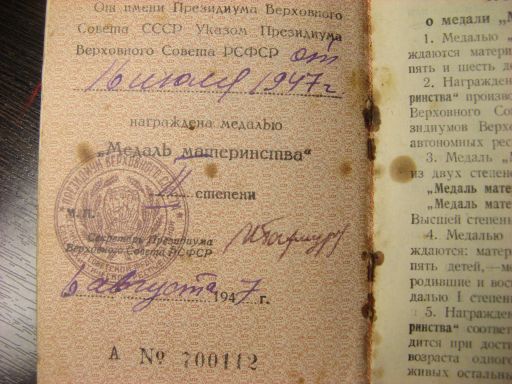 От имени Президиума Верховного
Совета СССР Указом Президиума
Верховного Совета РСФСР от
16 июля 1947 г
награждена медалью
„Медаль материнства“
II степени
М.П.
Секретарь Президиума
Верховного Совета РСФСР
6 августа 1947 г.
А № 700112
о медали „М
1. Медалью „
ждаются матери
пять и шесть д
2. Награжден
ринства“ произво
Верховного Со
зидиумов Верхо
автономных рес
3. Медаль „М
из двух степене
„Медаль мате
„Медаль мате
Высшей степень
4. Медалью
ждаются: матер
пять детей,—ме
родившие и вос
далью I степени
5. Награжден
ринства“ соответ
дится при дости
возраста одного
живых остальны